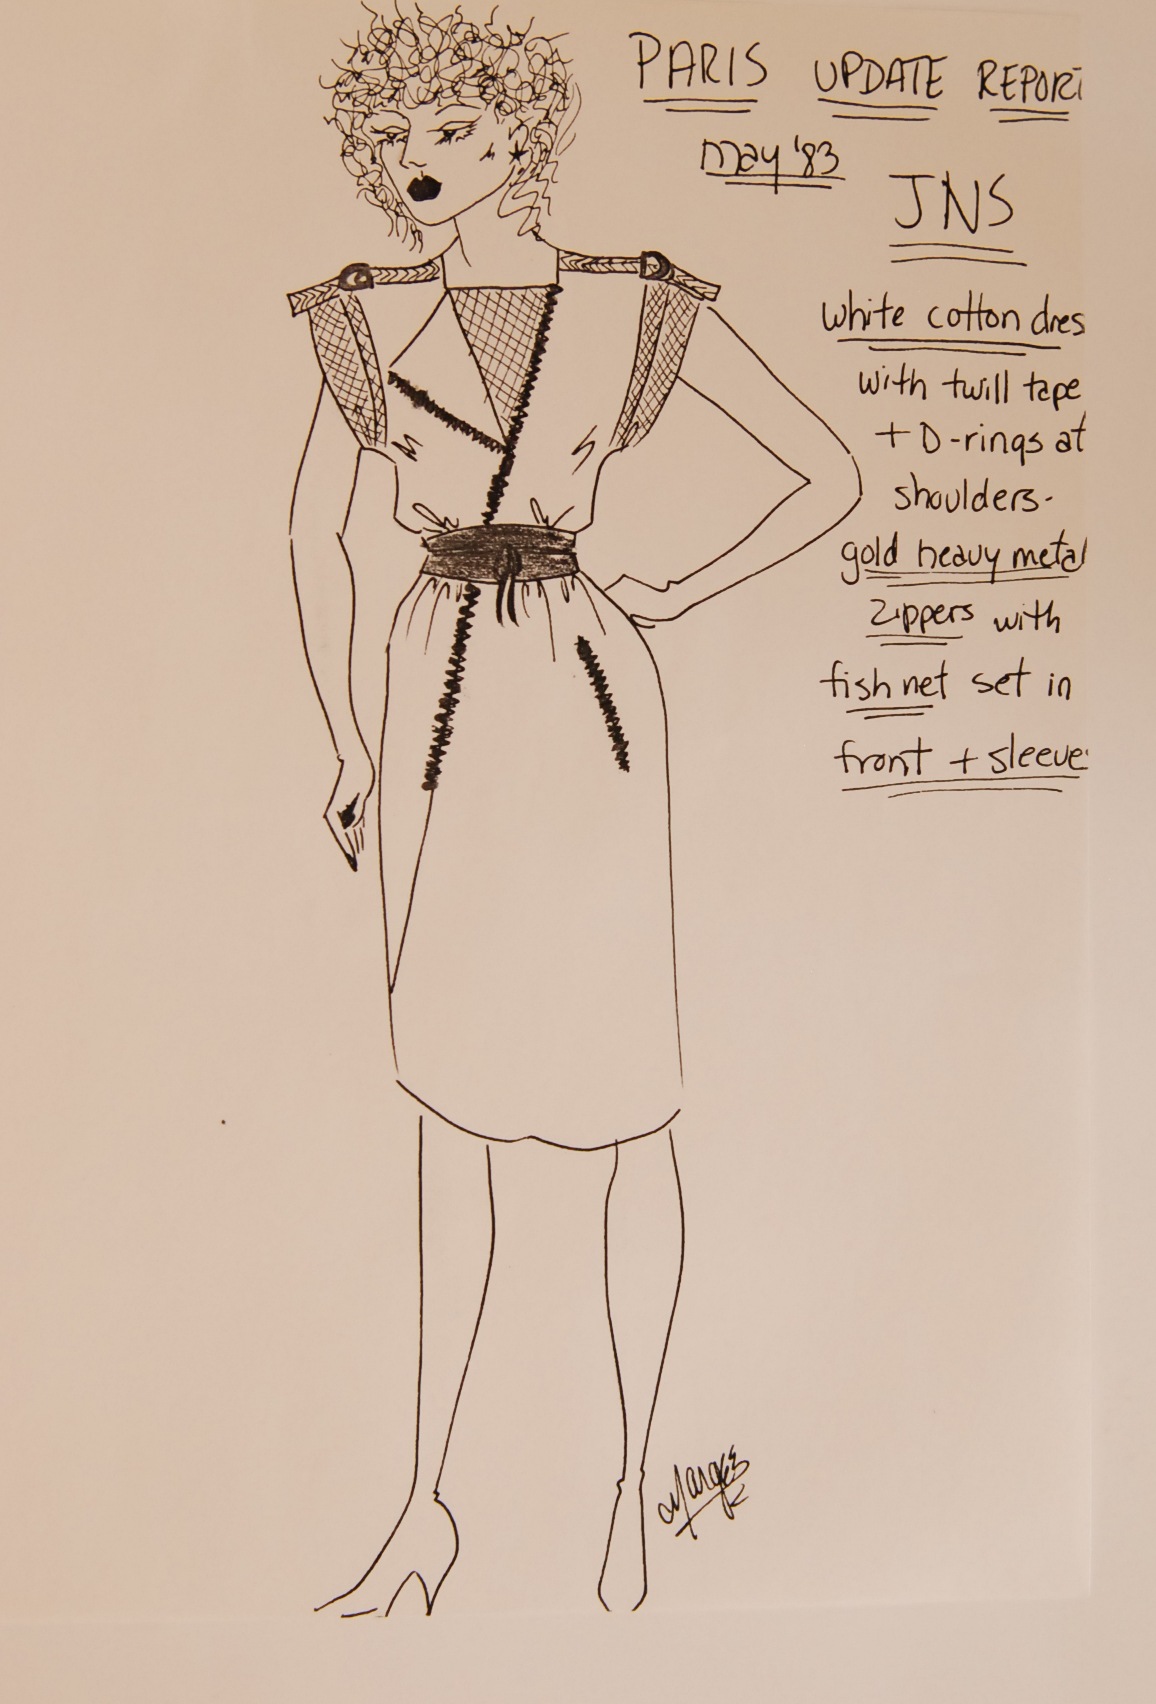 PARIS UPDATE REPORT
may '83
JNS
white cotton dres
with twill tape
+ D-rings at
shoulders-
gold heavy metal
zippers with
fish net set in
front + sleeve